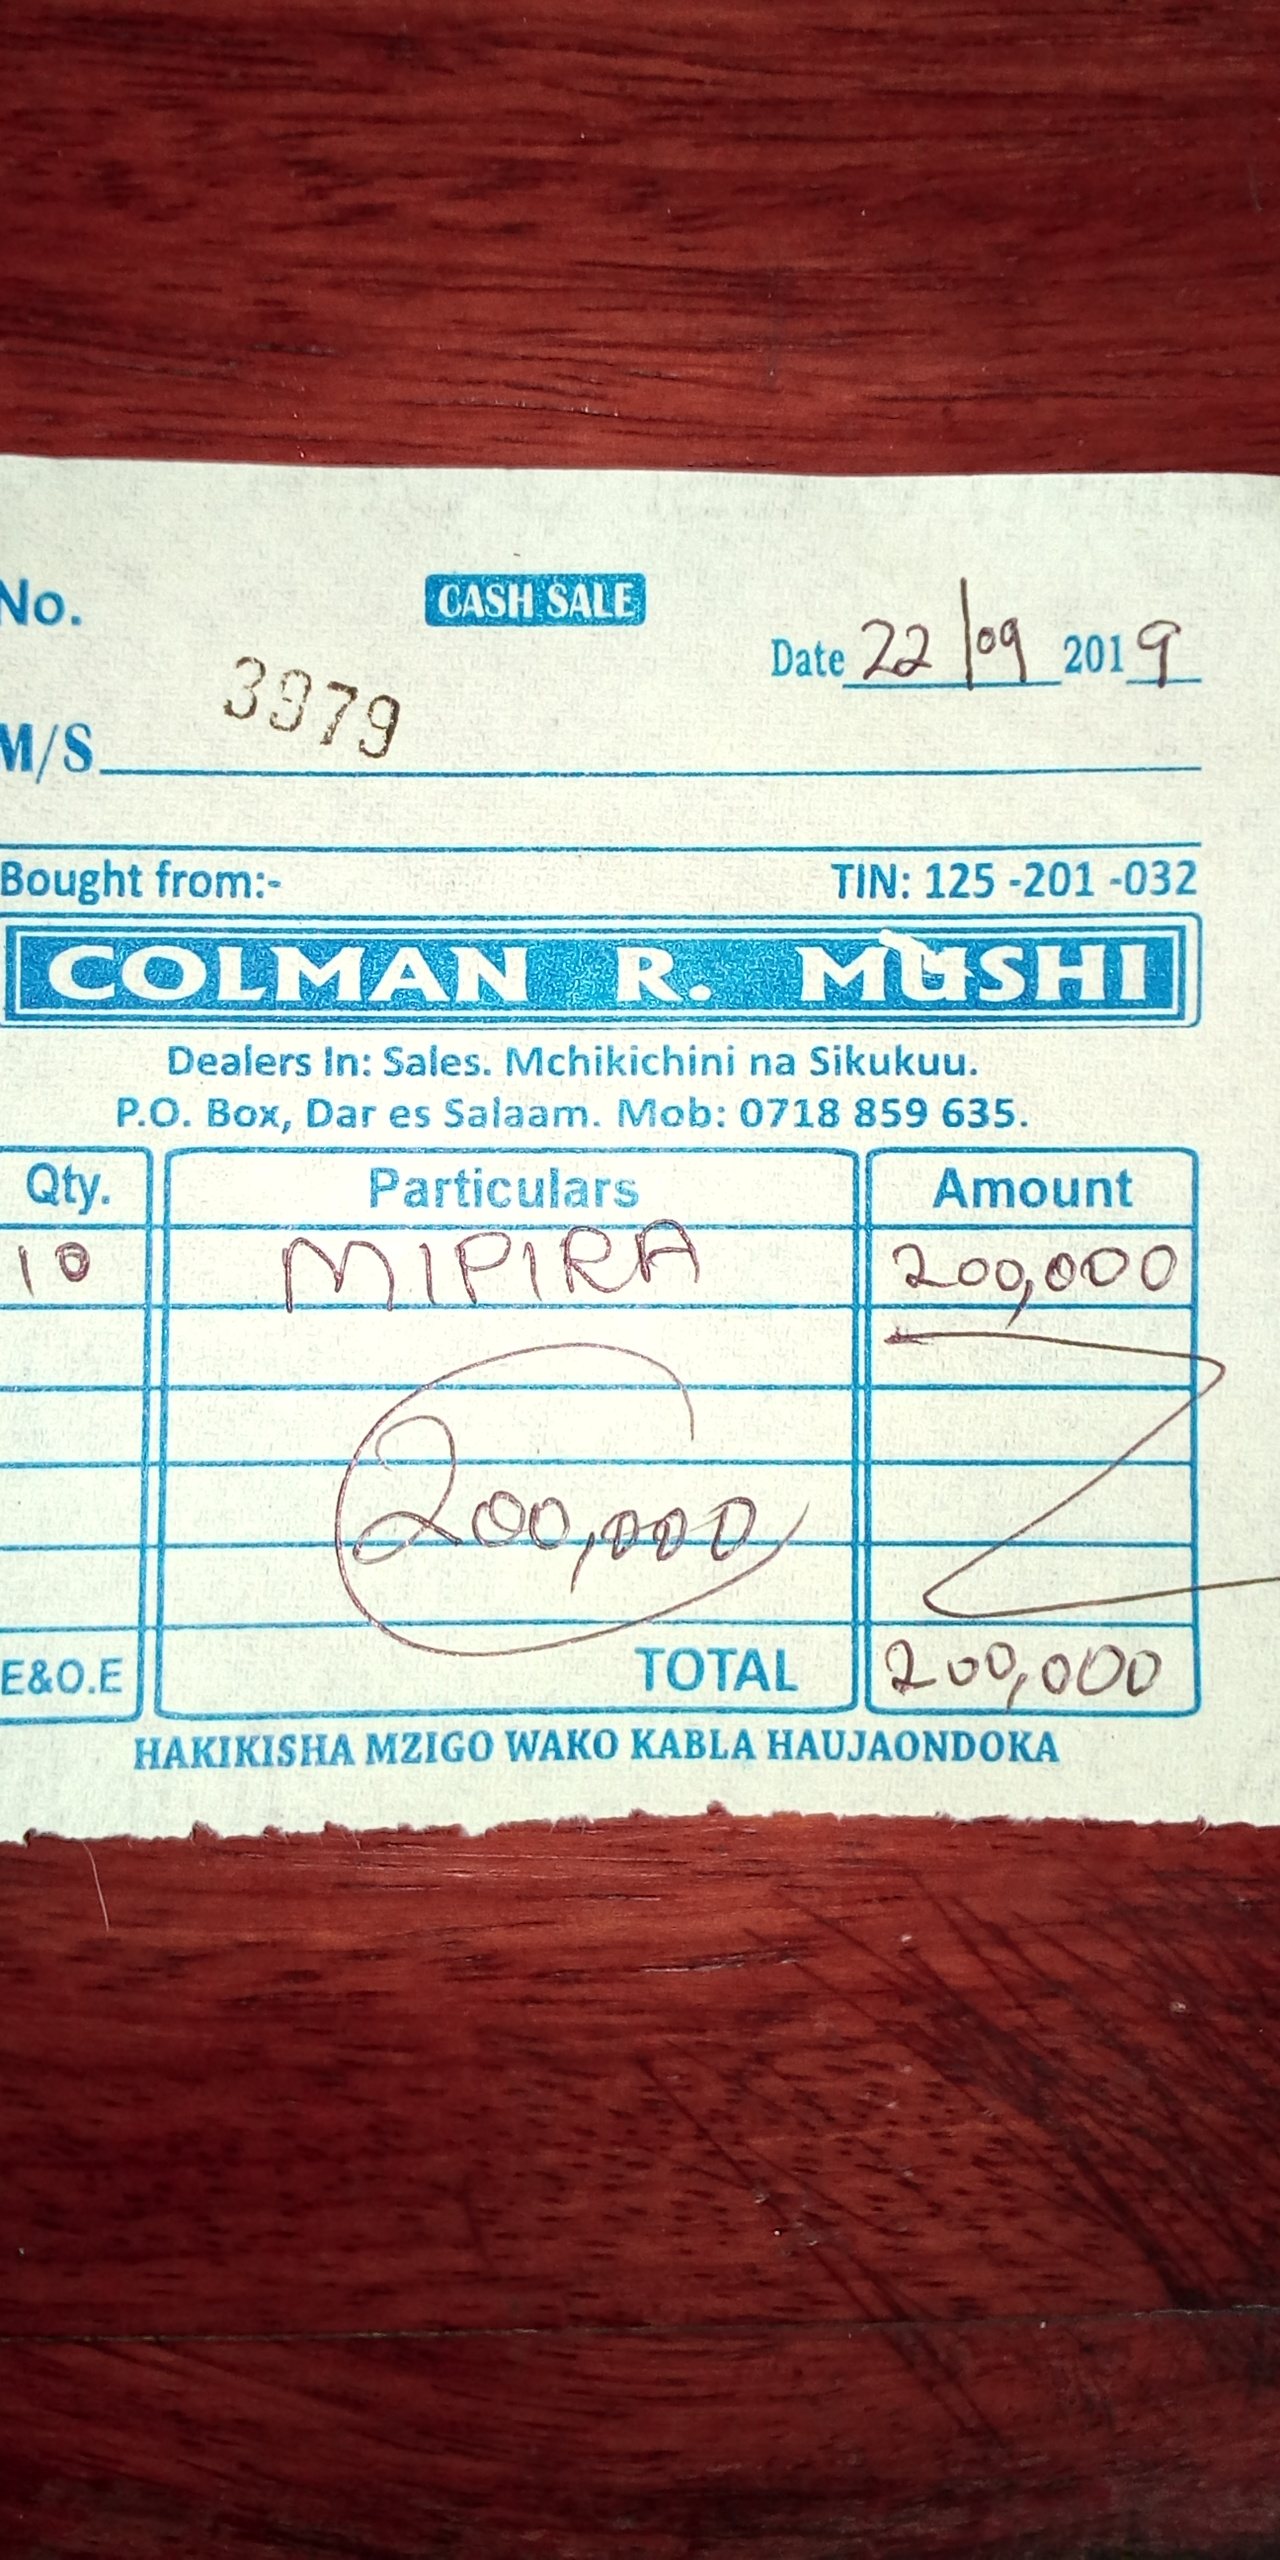 No.
CASH SALE
3979
Date 22/09 2019
M/S
Bought from:-
TIN: 125 -201 -032
COLMAN R. MUSHI
Dealers In: Sales. Mchikichini na Sikukuu.
P.O. Box, Dar es Salaam. Mob: 0718 859 635.
Qty. Particulars Amount
10 MIPIRA 200,000
200,000
E&O.E TOTAL 200,000
HAKIKISHA MZIGO WAKO KABLA HAUJAONDOKA